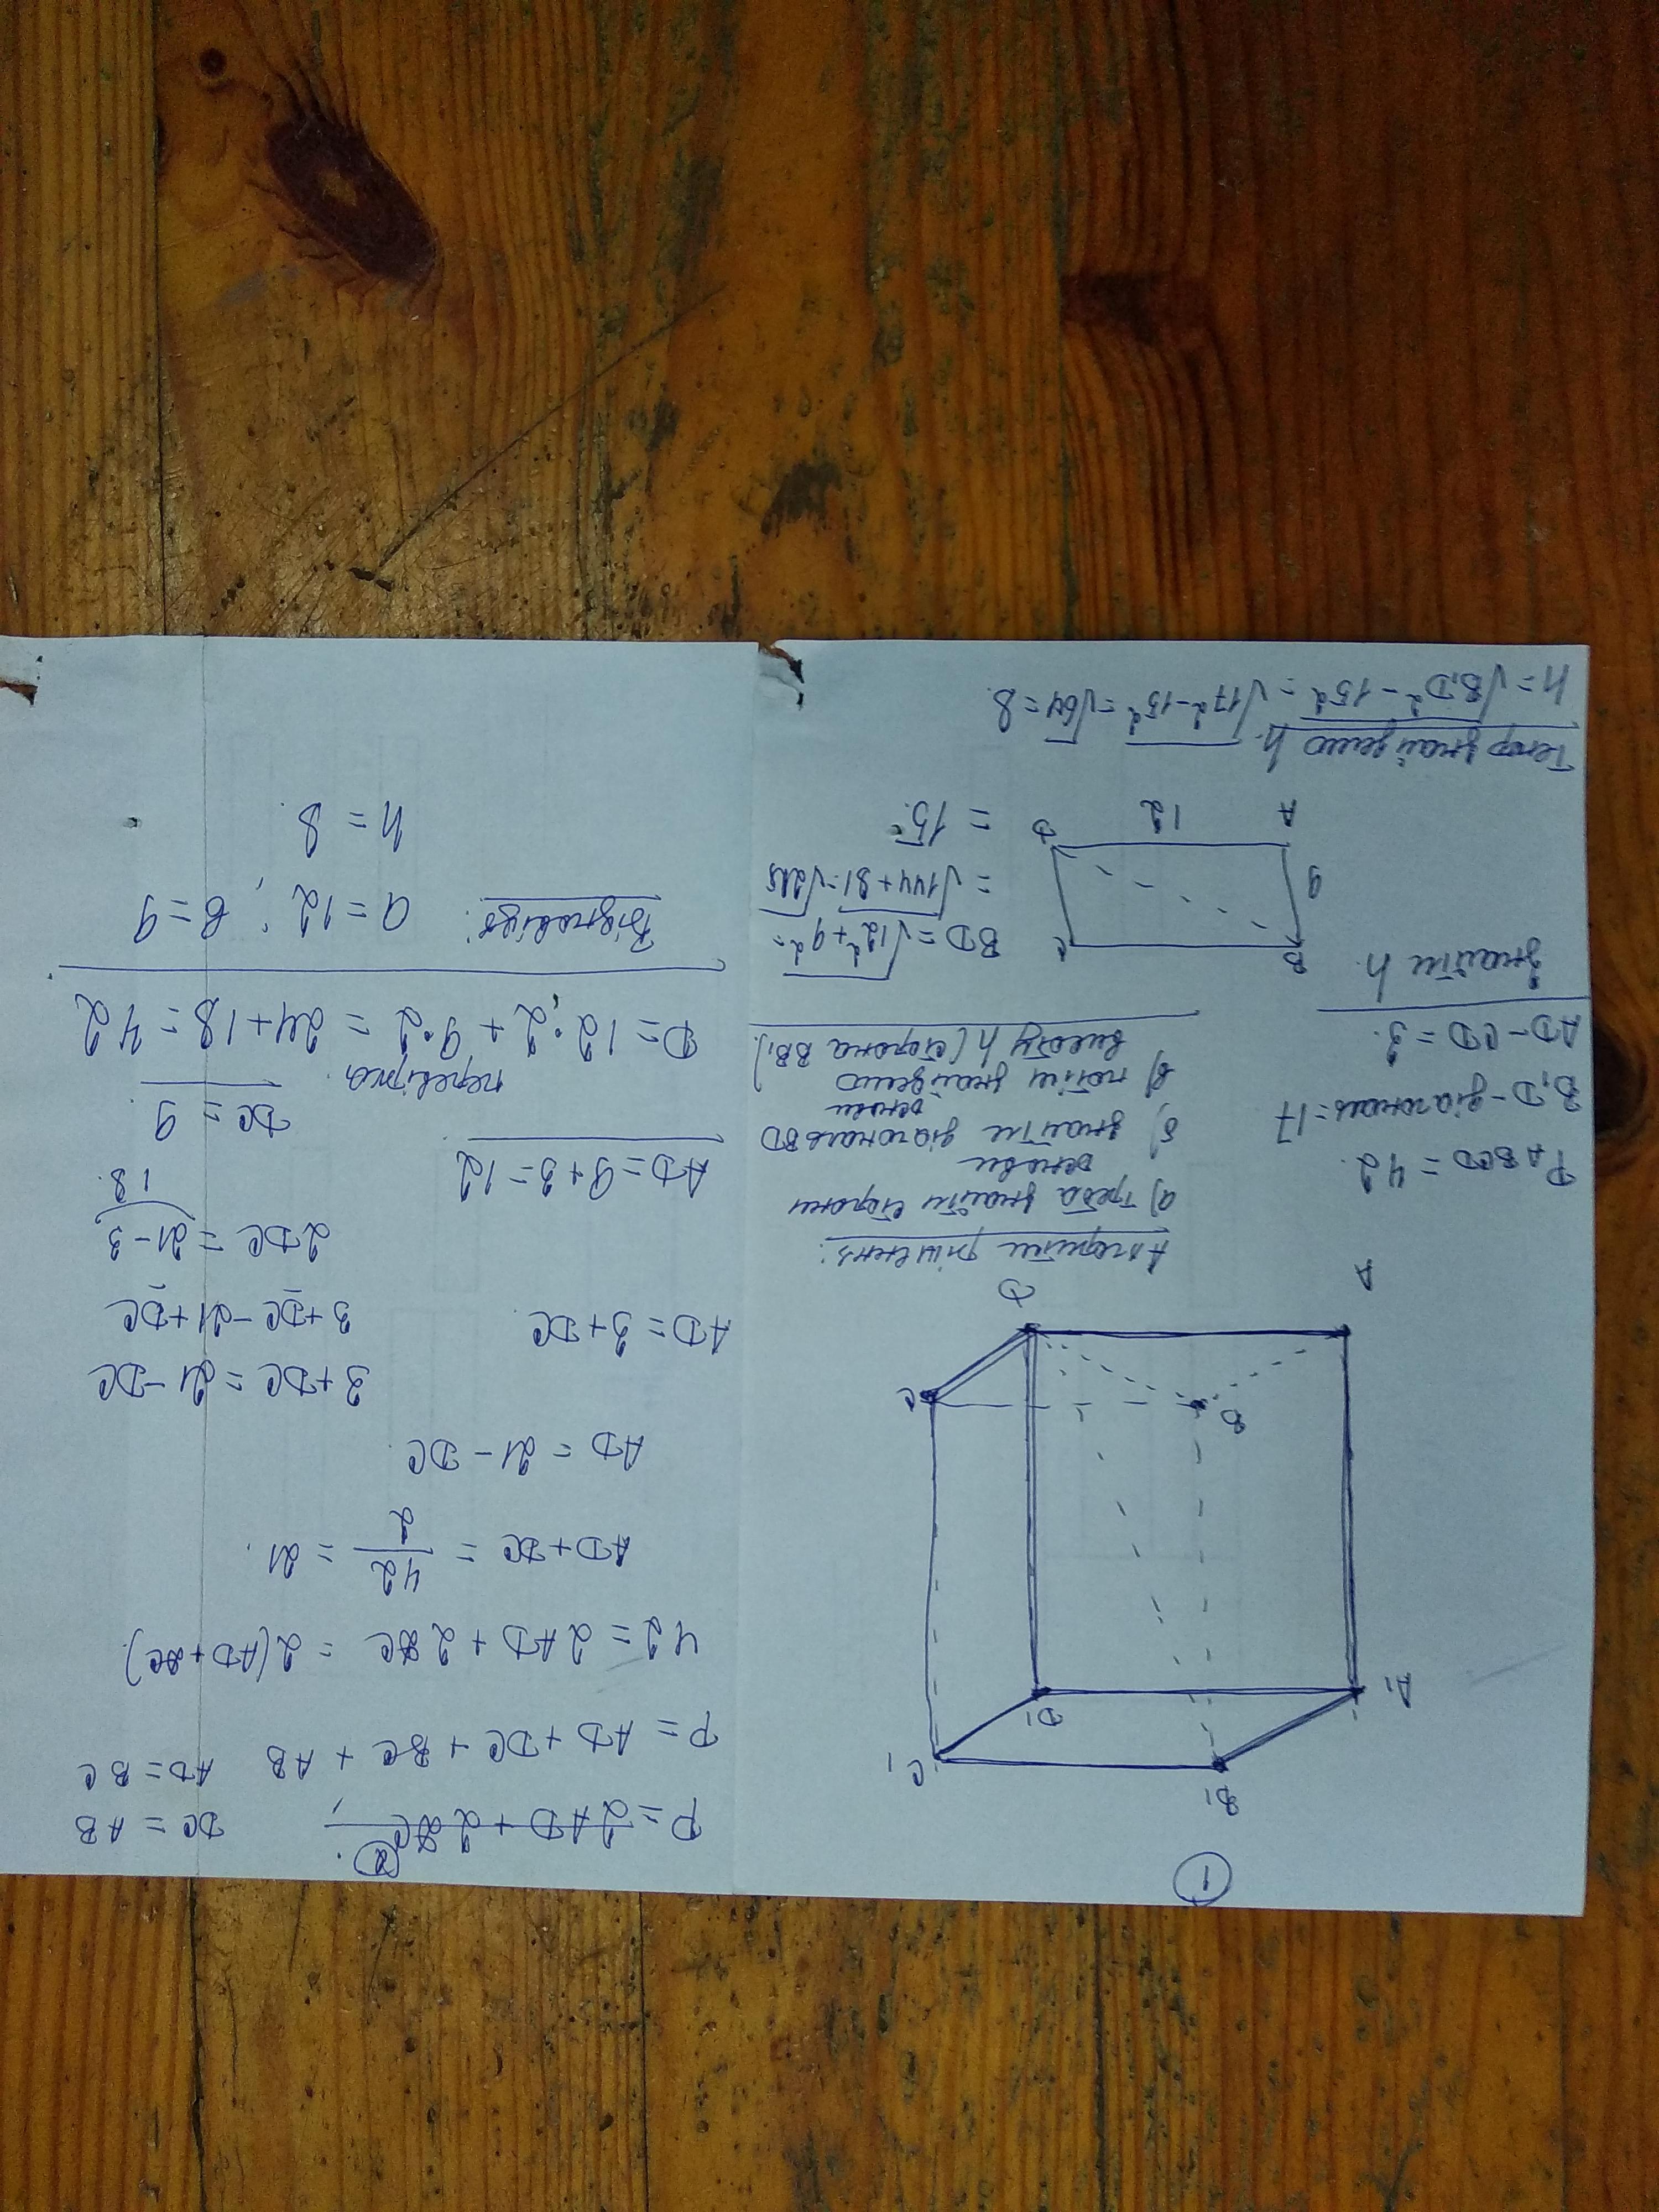 1
B1
C1
A1
D1
B
C
D
A
P ABCD = 42.
B1D - діагональ = 17
AD - CD = 3.
Знайти h.
Алгоритм рішення:
а) треба знайти сторони
основи
б) знайти діагональ BD
основи
в) потім знайдемо
висоту h (сторона BB1)
B
C
9
A
12
D
BD = √12² + 9² =
= √144 + 81 = √225
= 15.
Тепер знайдемо h.
h = √B1D² - 15² = √17² - 15² = √64 = 8.
2
P = 2AD + 2DC
DC = AB
P = AD + DC + BC + AB
AD = BC
42 = 2AD + 2DC = 2(AD + DC)
AD + DC = 42/2 = 21.
AD = 21 - DC
3 + DC = 21 - DC
AD = 3 + DC
3 + DC - 21 + DC
2DC = 21 - 3
18.
AD = 9 + 3 = 12
DC = 9
перевірка.
P = 12·2 + 9·2 = 24 + 18 = 42
Відповідь: a = 12; b = 9
h = 8.